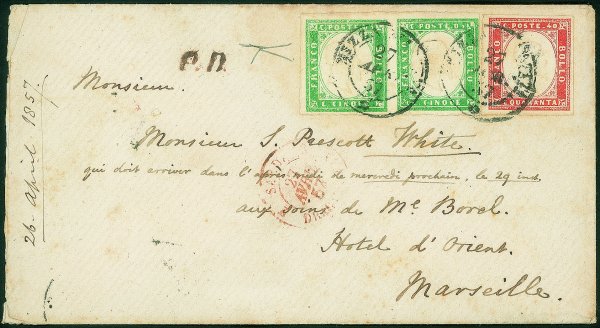 C. POSTE 05
FRANCO
BOLLO
C. CINQUE
C. POSTE 05
FRANCO
BOLLO
C. CINQUE
C. POSTE 40
FRANCO
BOLLO
C. QUARANTA
NIZZA
P.D.
Monsieur.
Monsieur S. Prescott White.
qui doit arriver dans l'après midi de mercredi prochain, le 29 inst.
aux soins de Mr. Borel.
Hotel d'Orient.
Marseille.
26 April 1857